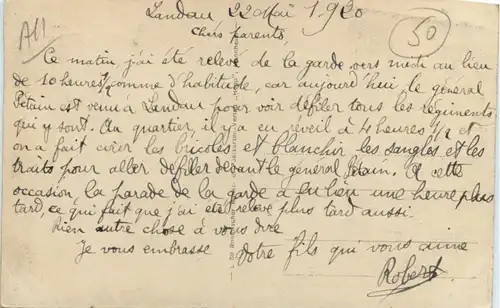 All
Landau 22 Mai 1920
50
Chers parents
Ce matin j'ai été relevé de la garde vers midi au lieu
de 10 heures 1/2 comme d'habitude, car aujourd'hui le général
Pétain est venu à Landau pour voir défiler tous les régiments
qui y sont. Au quartier, il y a eu réveil à 4 heures 1/2 et
on a fait cirer les bricoles et blanchir les sangles et les
traits pour aller défiler devant le général Pétain. A cette
occasion, la parade de la garde a eu lieu une heure plus
tard, ce qui fait que j'ai été relevé plus tard aussi.
Rien autre chose à vous dire
Je vous embrasse Votre fils qui vous aime
Robert